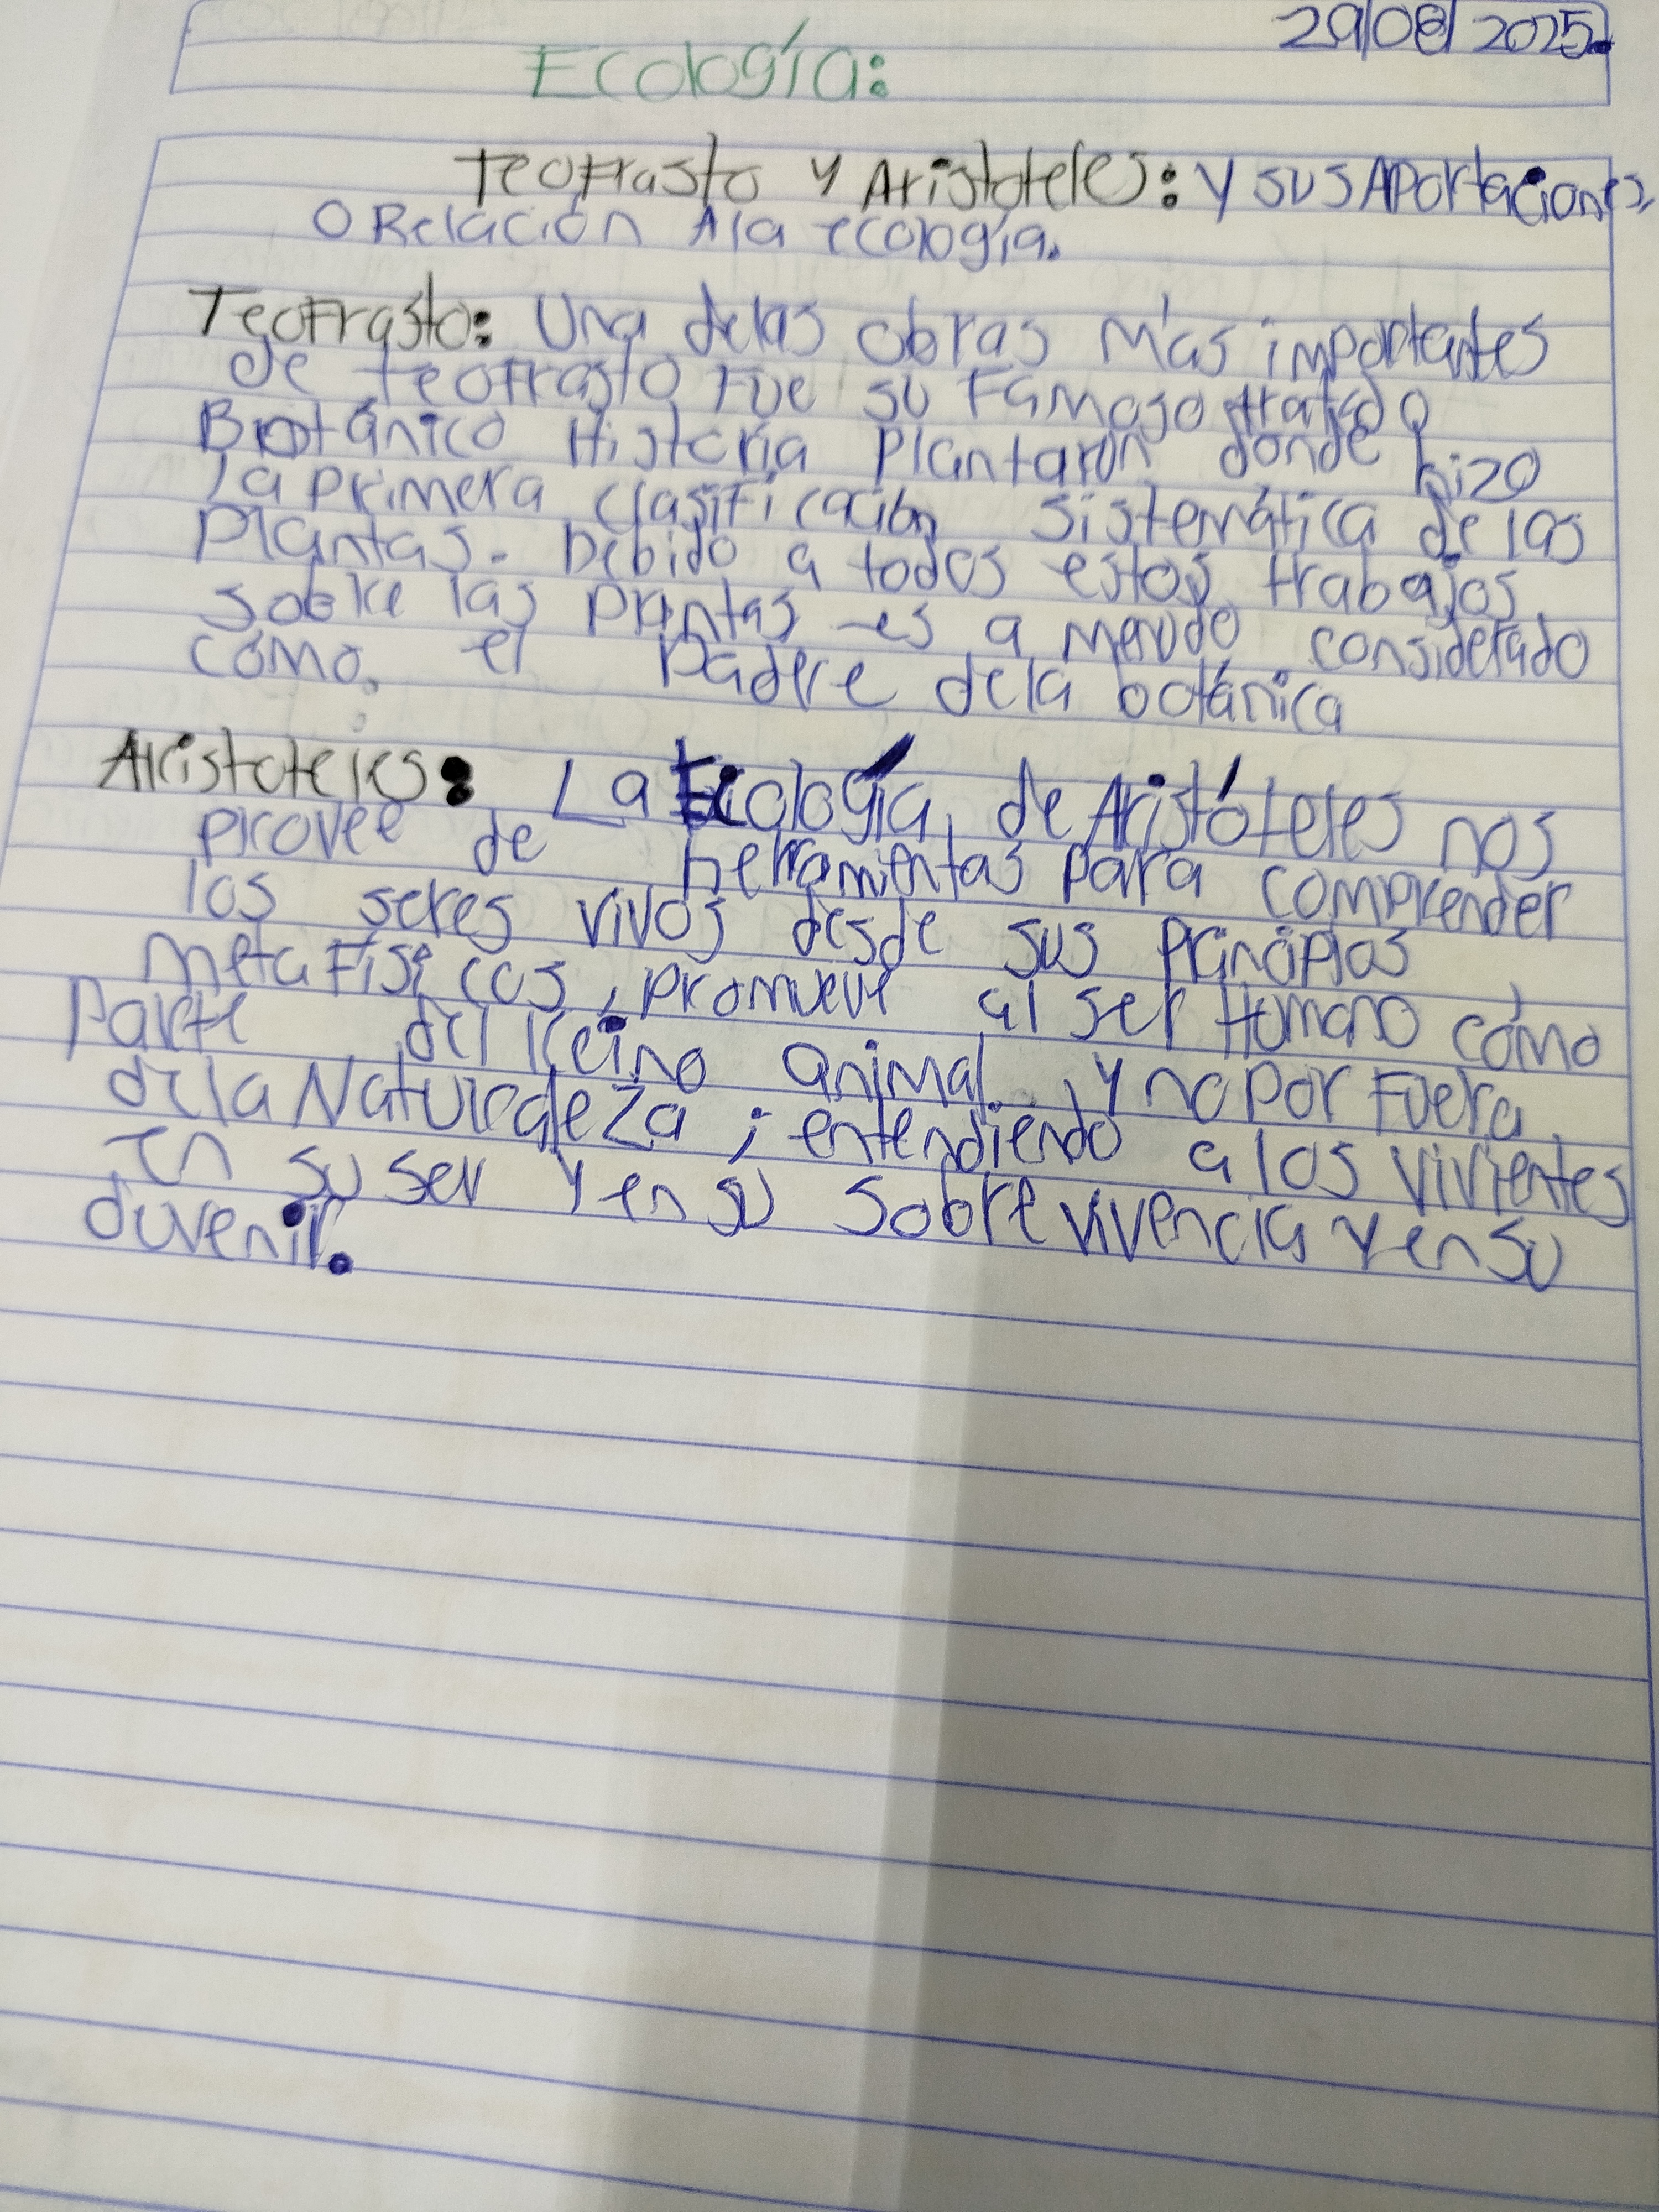 29/08/2025.
Ecología:
Teofrasto y Aristoteles: y sus Aportaciones,
o Relación A la ecología.
Teofrasto: Una delas obras más importantes
de teofrasto fue su famoso tratado
Botánico Historia Plantarun donde hizo
la primera clasificación sistemática de las
Plantas. Debido a todos estos trabajos
sobre las plantas es a menudo considerado
como. el Padere dela botánica
Aristoteles: La Ecología, de Aristóteles nos
provee de herramientas para comprender
los seres vivos desde sus principios
metafísicos, promueve al ser Humano como
parte del reino animal, y no por fuera
de la Naturaleza; entendiendo a los vivientes
en su ser y en su sobrevivencia y en su
duvenir.